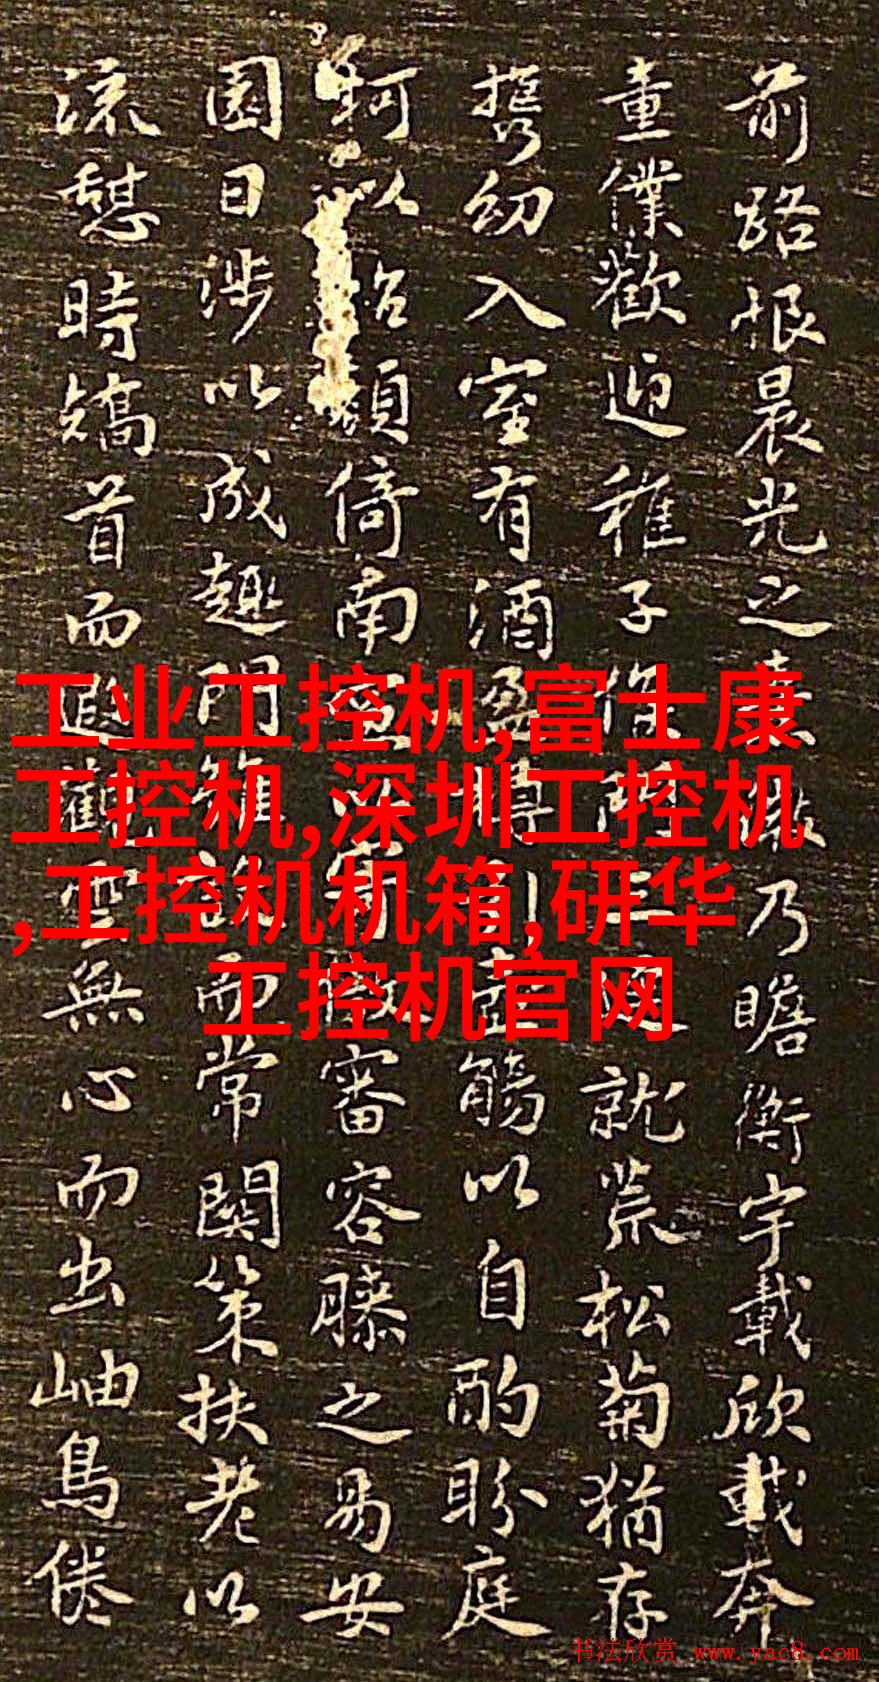 前路恨晨光之熹微乃瞻衡宇載欣載奔
童僕歡迎稚子候門三逕就荒松菊猶存
攜幼入室有酒盈樽引壺觴以自酌盼庭
柯以怡顏倚南窗以寄傲審容膝之易安
園日涉以成趣門雖設而常關策扶老以
流憩時矯首而遐觀雲無心而出岫鳥倦
工业工控机,富士康
工控机,深圳工控机
,工控机机箱,研华
工控机官网
书法欣赏 www.yac8.com